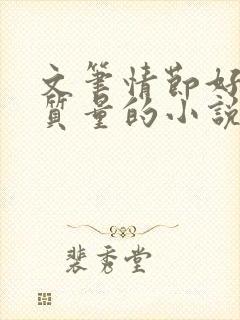 文筆情節好
質量的小說
裴秀堂